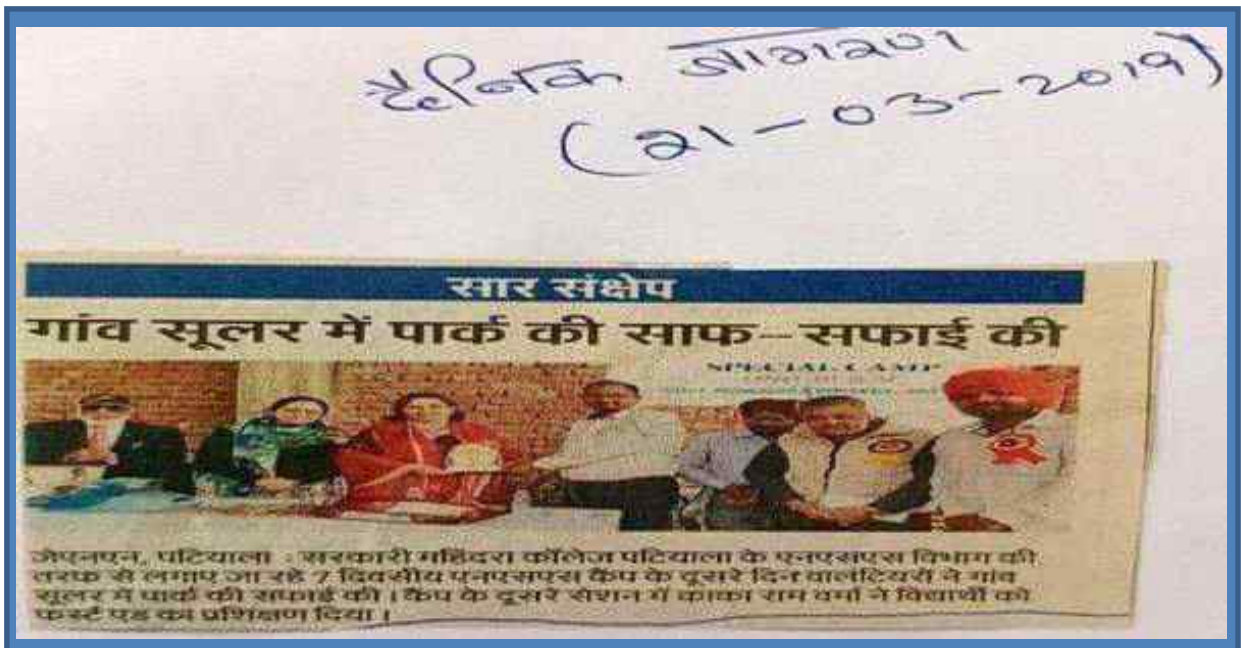 दैनिक जागरण
(21-03-2019)
सार संक्षेप
गांव सूलर में पार्क की साफ-सफाई की
SPECIAL CAMP
जेएनएन, पटियाला : सरकारी महिंदरा कॉलेज पटियाला के एनएसएस विभाग की
तरफ से लगाए जा रहे 7 दिवसीय एनएसएस कैंप के दूसरे दिन वालंटियरों ने गांव
सूलर में पार्क की सफाई की। कैंप के दूसरे सेशन में काका राम वर्मा ने विद्यार्थी को
फर्स्ट एड का प्रशिक्षण दिया।